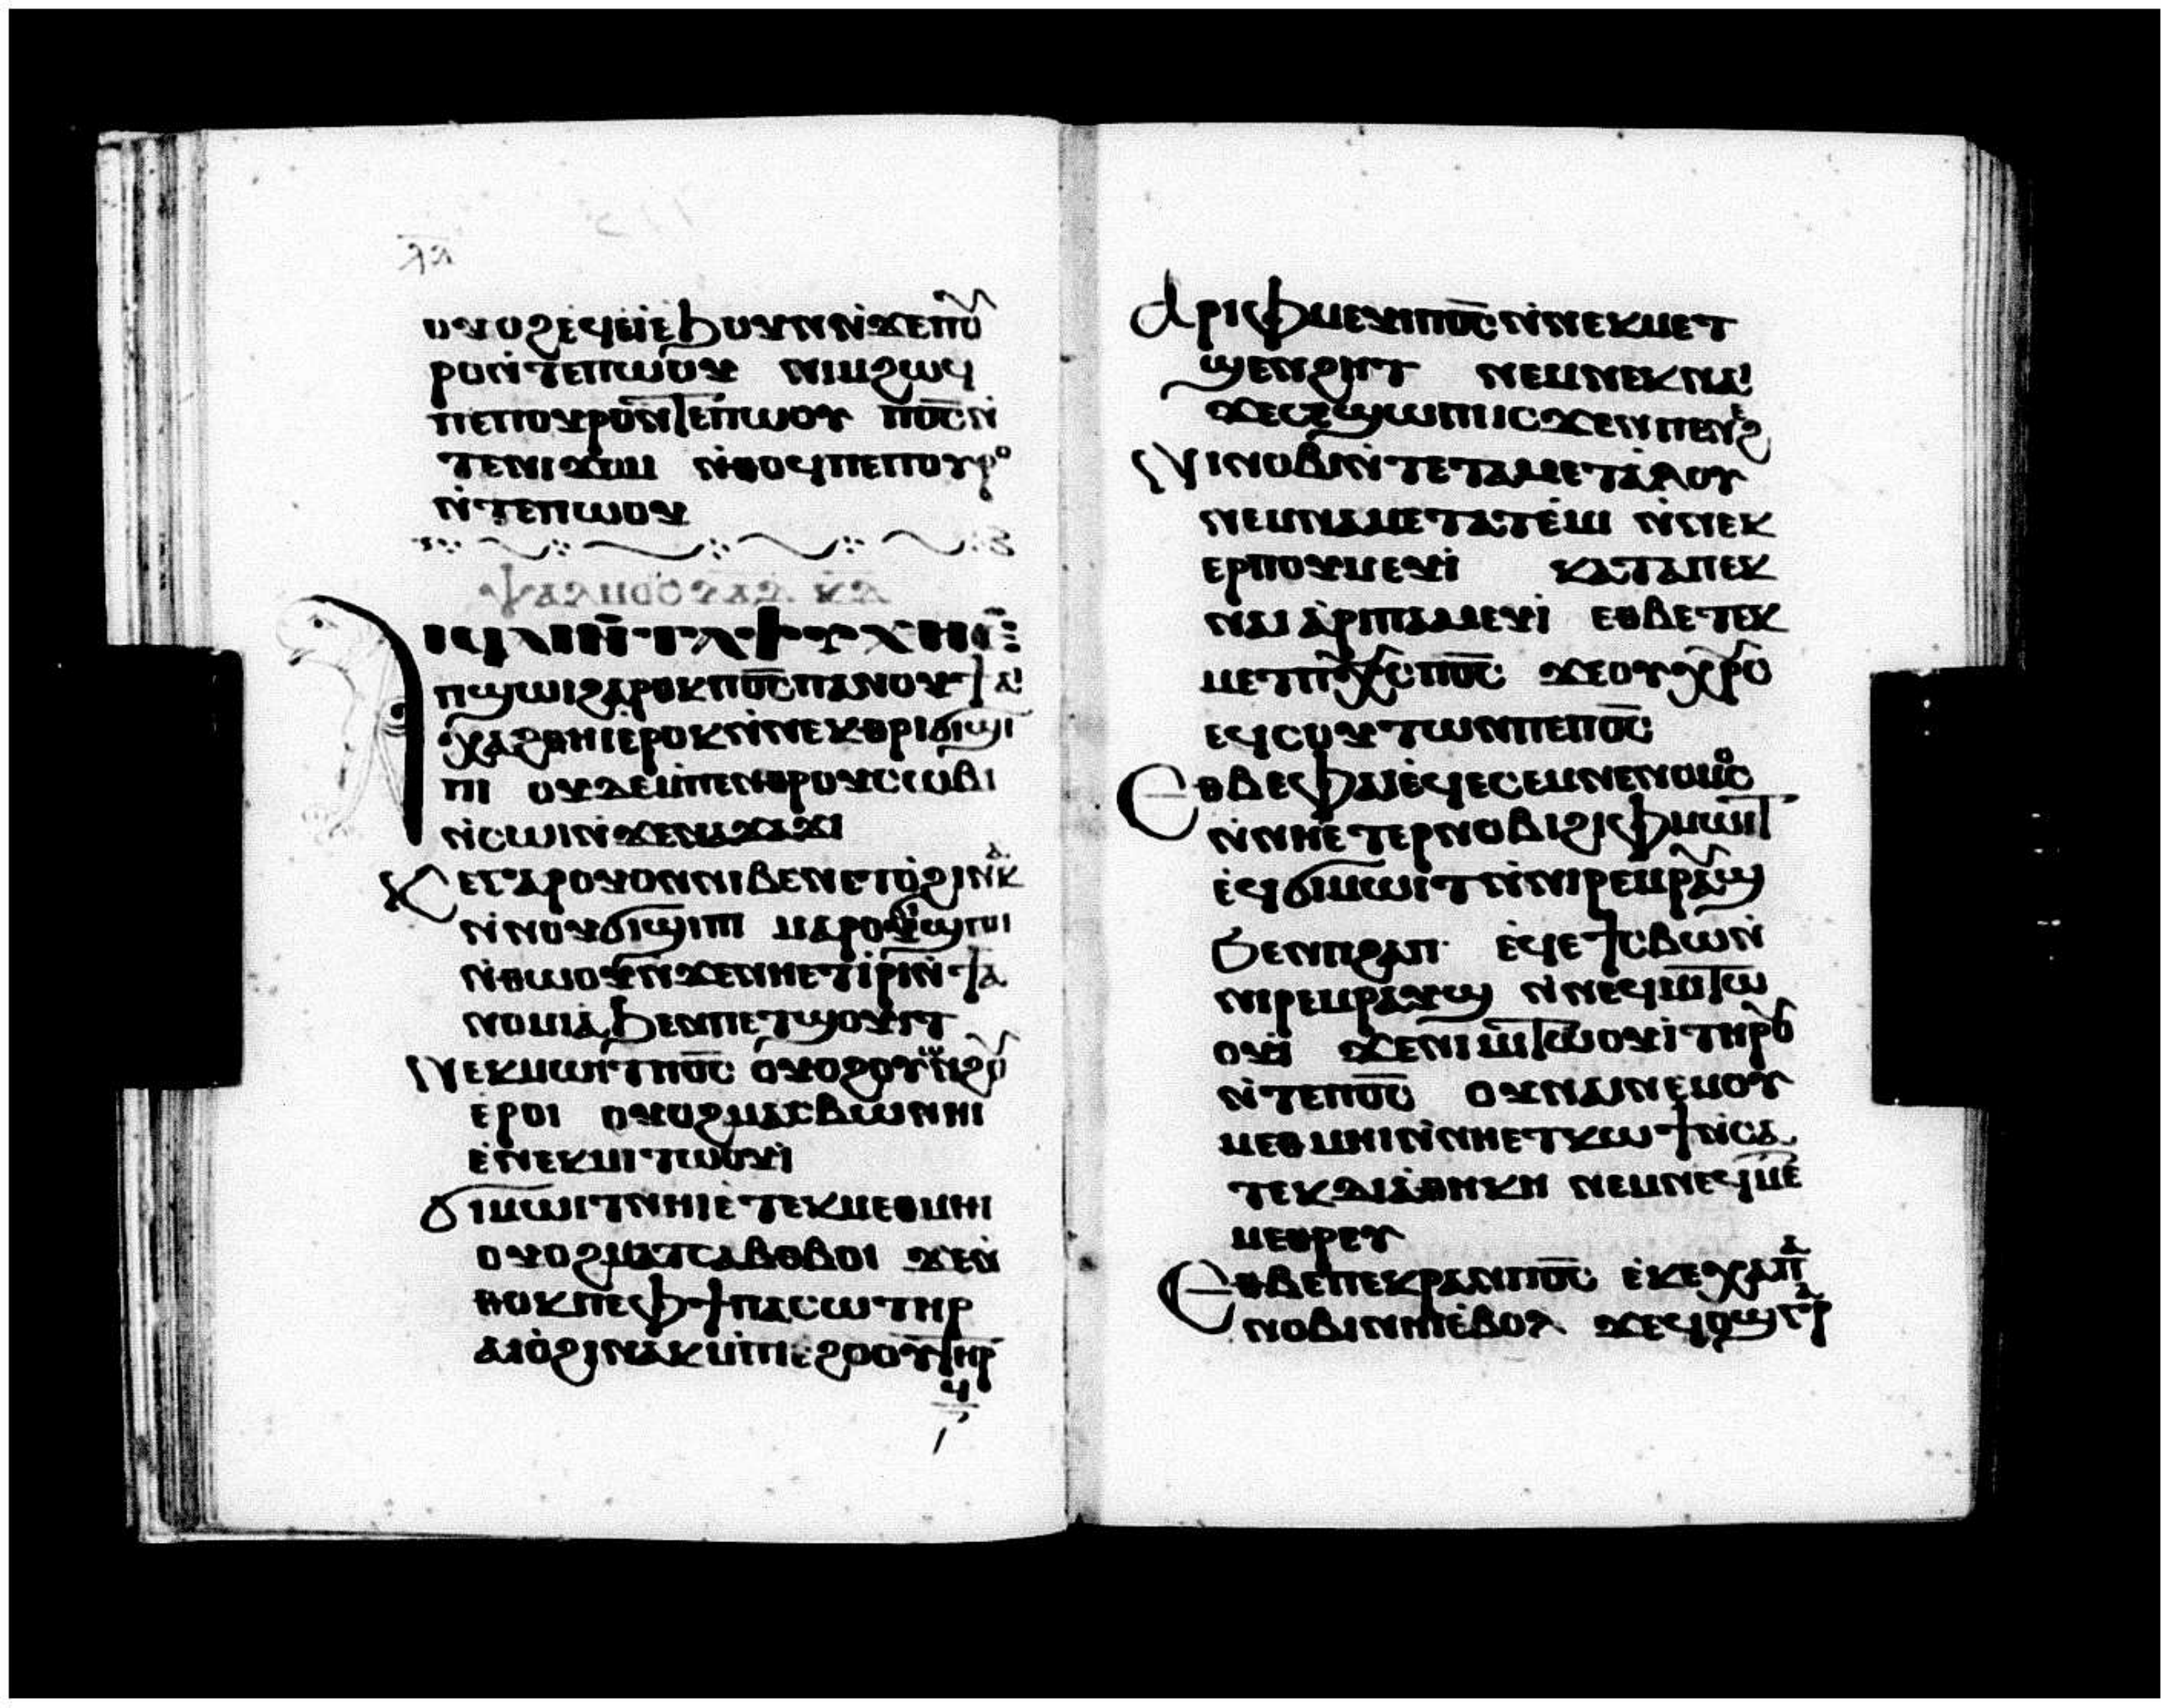 ⲗⲁ
ⲟⲩⲟϩⲉ̀ϥⲉⲓ̀ⲉ̀ϧⲟⲩⲛⲛ̀ϫⲉⲡⲟⲩ
ⲣⲟⲛ̀ⲧⲉⲡⲱⲟⲩ ⲛⲓⲙϩⲱϥ
ⲡⲉⲡⲟⲩⲣⲟⲛ̀ⲧⲉⲡⲱⲟⲩ ⲡⲟ̅ⲥ̅ⲛ̀
ⲧⲉⲛⲓϫⲟⲙ ⲛ̀ⲑⲟϥⲡⲉⲡⲟⲩⲣⲟ
ⲛ̀ⲧⲉⲡⲱⲟⲩ
ⲯⲁⲗⲙⲟⲥ ⲇⲁⲇ ⲕⲇ
ⲁⲓϥⲁⲓⲛ̀ⲧⲁⲯⲩⲭⲏⲉ̀
ⲡϣⲱⲓϩⲁⲣⲟⲕⲡⲟ̅ⲥ̅ⲡⲁⲛⲟⲩϯⲁⲓ
ⲭⲁϩⲑⲏⲓⲉ̀ⲣⲟⲕⲛ̀ⲛⲉⲕⲑⲣⲓϭⲓϣⲓ
ⲡⲓ ⲟⲩⲇⲉⲙ̀ⲡⲉⲛⲑⲣⲟⲩⲥⲱⲃⲓ
ⲛ̀ⲥⲱⲓⲛ̀ϫⲉⲛⲁϫⲁϫⲓ
ⲕⲉⲅⲁⲣⲟⲩⲟⲛⲛⲓⲃⲉⲛⲉⲧⲟ̀ϩⲓⲛⲁⲕ
ⲛ̀ⲛⲟⲩϭⲓϣⲓⲡⲓ ⲙⲁⲣⲟⲩϭⲓϣⲓⲡⲓ
ⲛ̀ⲑⲱⲟⲩⲛ̀ϫⲉⲛⲏⲉⲧⲓ̀ⲣⲓⲛ̀ϯⲁ
ⲛⲟⲙⲓⲁ̀ϧⲉⲛⲡⲉⲧϣⲟⲩⲓⲧ
ⲛⲉⲕⲙⲱⲓⲧⲡⲟ̅ⲥ̅ ⲟⲩⲟϩⲟⲩⲟⲛϩⲟⲩ
ⲉ̀ⲣⲟⲓ ⲟⲩⲟϩⲙⲁⲧⲥⲃⲱⲛⲏⲓ
ⲉ̀ⲛⲉⲕⲙⲓⲧⲱⲟⲩⲓ̀
ϭⲓⲙⲱⲓⲧⲛⲏⲓⲉ̀ⲧⲉⲕⲙⲉⲑⲙⲏⲓ
ⲟⲩⲟϩⲙⲁⲧⲥⲁⲃⲟⲃⲟⲓ ϫⲉⲛ̀
ⲑⲟⲕⲡⲉⲫϯⲡⲁⲥⲱⲧⲏⲣ
ⲁⲓⲟ̀ϩⲓⲛⲁⲕⲙ̀ⲡⲓⲉϩⲟⲟⲩⲧⲏⲣϥ
ⲁⲣⲓⲫⲙⲉⲩⲓⲡⲟ̅ⲥ̅ⲛ̀ⲛⲉⲕⲙⲉⲧ
ϣⲉⲛϩⲏⲧ ⲛⲉⲙⲛⲉⲕⲛⲁⲓ
ϫⲉⲥⲉϣⲱⲡⲓⲓⲥϫⲉⲛⲡⲉⲛⲉϩ
ⲛⲓⲛⲟⲃⲓⲛ̀ⲧⲉⲧⲁⲙⲉⲧⲁ̀ⲗⲟⲩ
ⲛⲉⲙⲛⲁⲙⲉⲧⲁⲧⲉ̀ⲙⲓ ⲛ̀ⲛⲉⲕ
ⲉⲣⲡⲟⲩⲙⲉⲩⲓ̀ ⲕⲁⲧⲁⲡⲉⲕ
ⲛⲁⲓ ⲁ̀ⲣⲓⲡⲁⲙⲉⲩⲓ̀ ⲉⲑⲃⲉⲧⲉⲕ
ⲙⲉⲧⲡⲭ̅ⲥ̅ⲡⲟ̅ⲥ̅ ϫⲉⲟⲩⲭⲣ̅ⲥ
ⲉϥⲥⲟⲩⲧⲱⲛⲡⲉⲡⲟ̅ⲥ̅
ⲉⲑⲃⲉⲫⲁⲓⲉ̀ϥⲉⲥⲉⲙⲛⲉⲛⲟⲙⲟⲥ
ⲛ̀ⲛⲏⲉ̀ⲧⲉⲣⲛⲟⲃⲓϩⲓⲫⲙⲱⲓⲧ
ⲉ̀ϥϭⲓⲙⲱⲓⲧⲛ̀ⲛⲓⲣⲉⲙⲣⲁⲩϣ
ϧⲉⲛⲡϩⲁⲡ ⲉ̀ϥⲉϯⲥⲃⲱⲛ̀
ⲛⲓⲣⲉⲙⲣⲁⲩϣ ⲛ̀ⲛⲉϥⲙⲓⲧⲱ
ⲟⲩⲓ̀ ϫⲉⲛⲓⲙⲓⲧⲱⲟⲩⲓ̀ⲧⲏⲣⲟⲩ
ⲛ̀ⲧⲉⲡⲟ̅ⲥ̅ ⲟⲩⲛⲁⲓⲛⲉⲙⲟⲩ
ⲙⲉⲑⲙⲏⲓⲛ̀ⲛⲏⲉⲧⲕⲱϯⲛ̀ⲥⲁ
ⲧⲉⲕⲇⲓⲁ̀ⲑⲏⲕⲏ ⲛⲉⲙⲛⲉϥⲙⲉ
ⲙⲉⲑⲣⲉⲩ
ⲉⲑⲃⲉⲡⲉⲕⲣⲁⲛⲡⲟ̅ⲥ̅ ⲉ̀ⲕⲉⲭⲁⲡⲁ
ⲛⲟⲃⲓⲛⲏⲓⲉ̀ⲃⲟⲗ ϫⲉϥⲟϣⲅⲁⲣ